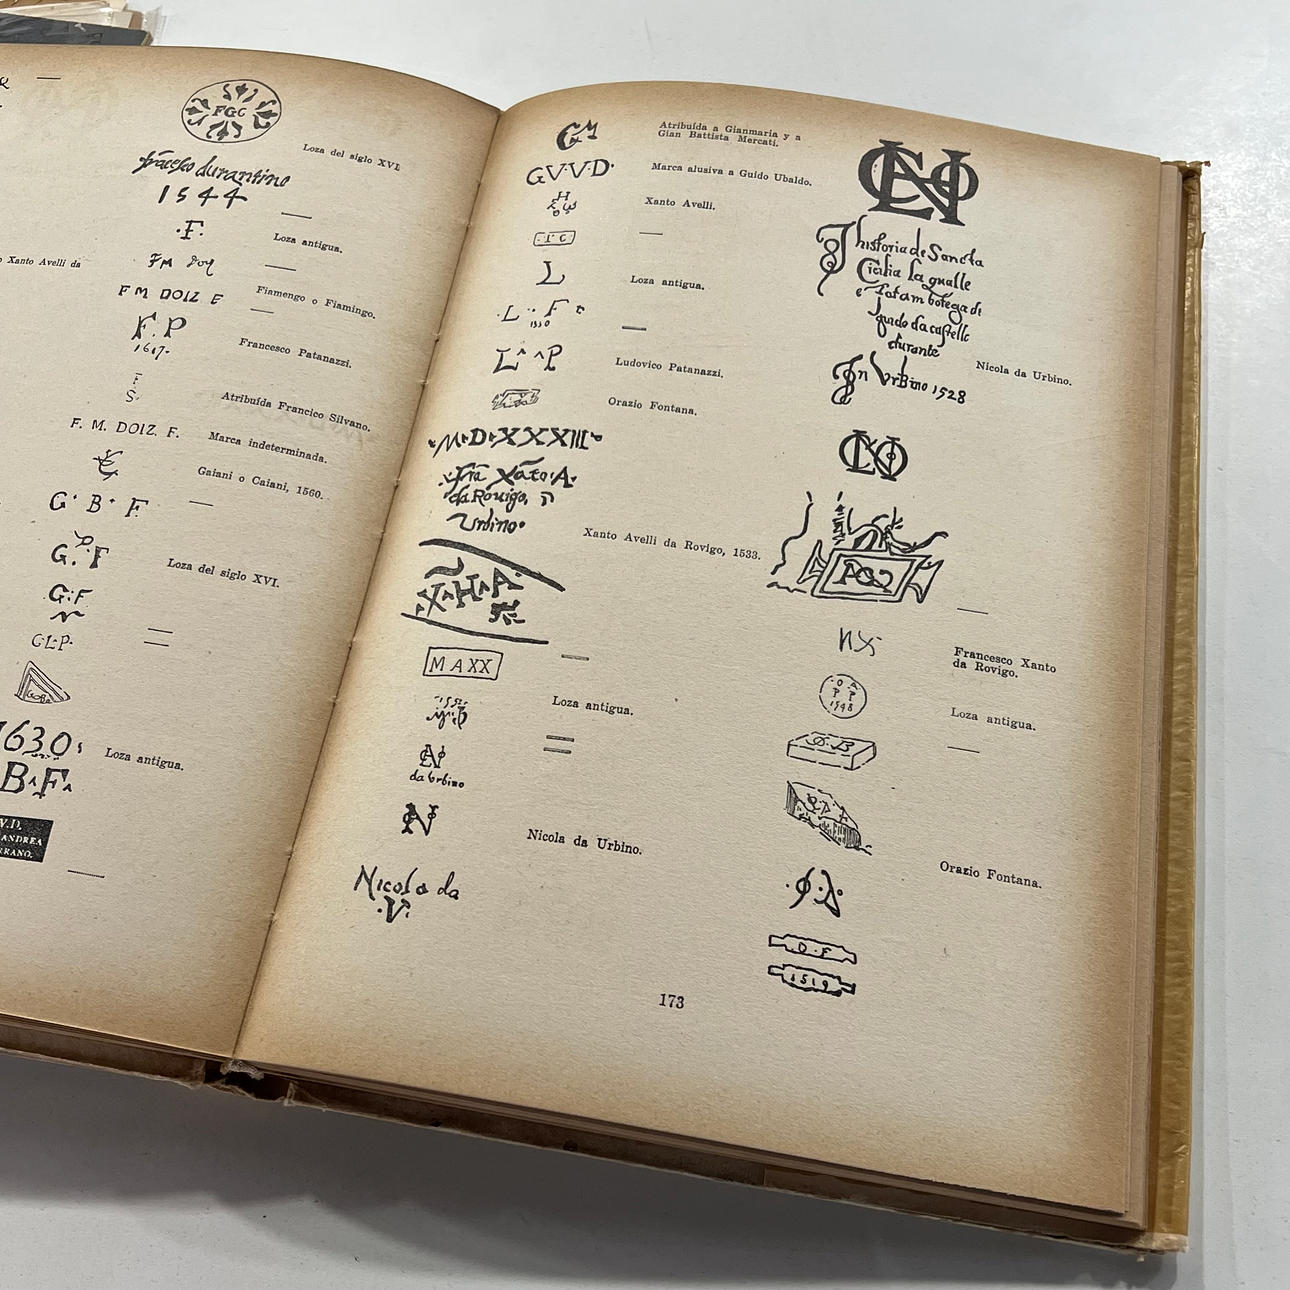 FGC
Loza del siglo XVI
durantino
1544
.F.
Loza antigua.
o Xanto Avelli da
FM
FM DOIZ F
Fiamengo o Flamingo.
F. P
1617.
Francesco Patanazzi.
F
S.
Atribuída Francico Silvano.
F. M. DOIZ. F.
Marca indeterminada.
Gaiani o Caiani, 1560.
G · B · F
G. F
Loza del siglo XVI.
G:F
G·L·P·
1630
B·F
Loza antigua.
V.D.
ANDREA
RRANO.
Atribuída a Gianmaria y a
Gian Battista Mercati.
GV·V·D·
Marca alusiva a Guido Ubaldo.
Xanto Avelli.
L
Loza antigua.
L F
L P
Ludovico Patanazzi.
Orazio Fontana.
·M·D·XXXIII·
fra Xāto·A·
da Rouigo,
Urbino·
Xanto Avelli da Rovigo, 1533.
·X·H·A·
MAXX
Loza antigua.
da Urbino
N
Nicola da Urbino.
Nicola da
·V·
historia de Sancta
Cicilia la qualle
botega di
guido da castello
durante
In Urbino 1528
Nicola da Urbino.
Francesco Xanto
da Rovigo.
O A
P P
1548
Loza antigua.
Orazio Fontana.
O·F
1519
173